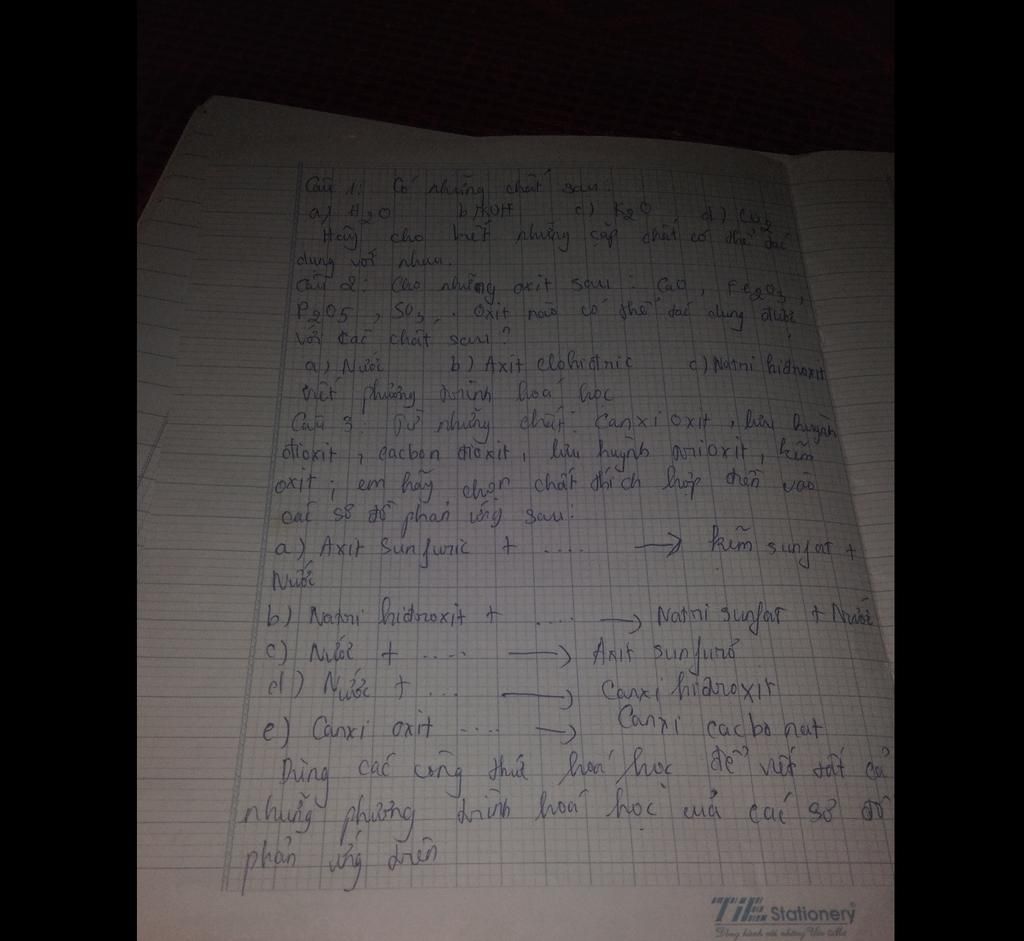 Câu 1: Có những chất sau:
a) H2O b) KOH c) K2O d) CO2
Hãy cho biết những cặp chất có thể tác
dụng với nhau.
Câu 2: Cho những oxit sau: CaO, Fe2O3,
P2O5, SO3. Oxit nào có thể tác dụng được
với các chất sau?
a) Nước b) Axit clohidric c) Natri hidroxit
viết phương trình hoá học
Câu 3: Từ những chất: Canxi oxit, lưu huỳnh
đioxit, cacbon đioxit, lưu huỳnh trioxit, kẽm
oxit; em hãy chọn chất thích hợp điền vào
các sơ đồ phản ứng sau:
a) Axit Sunfuric + .... → kẽm sunfat +
Nước
b) Natri hidroxit + .... → Natri sunfat + Nước
c) Nước + .... → Axit sunfurơ
d) Nước + ... → Canxi hidroxit
e) Canxi oxit .... → Canxi cacbonat
Dùng các công thức hoá học để viết tất cả
những phương trình hoá học của các sơ đồ
phản ứng trên
TiE Stationery